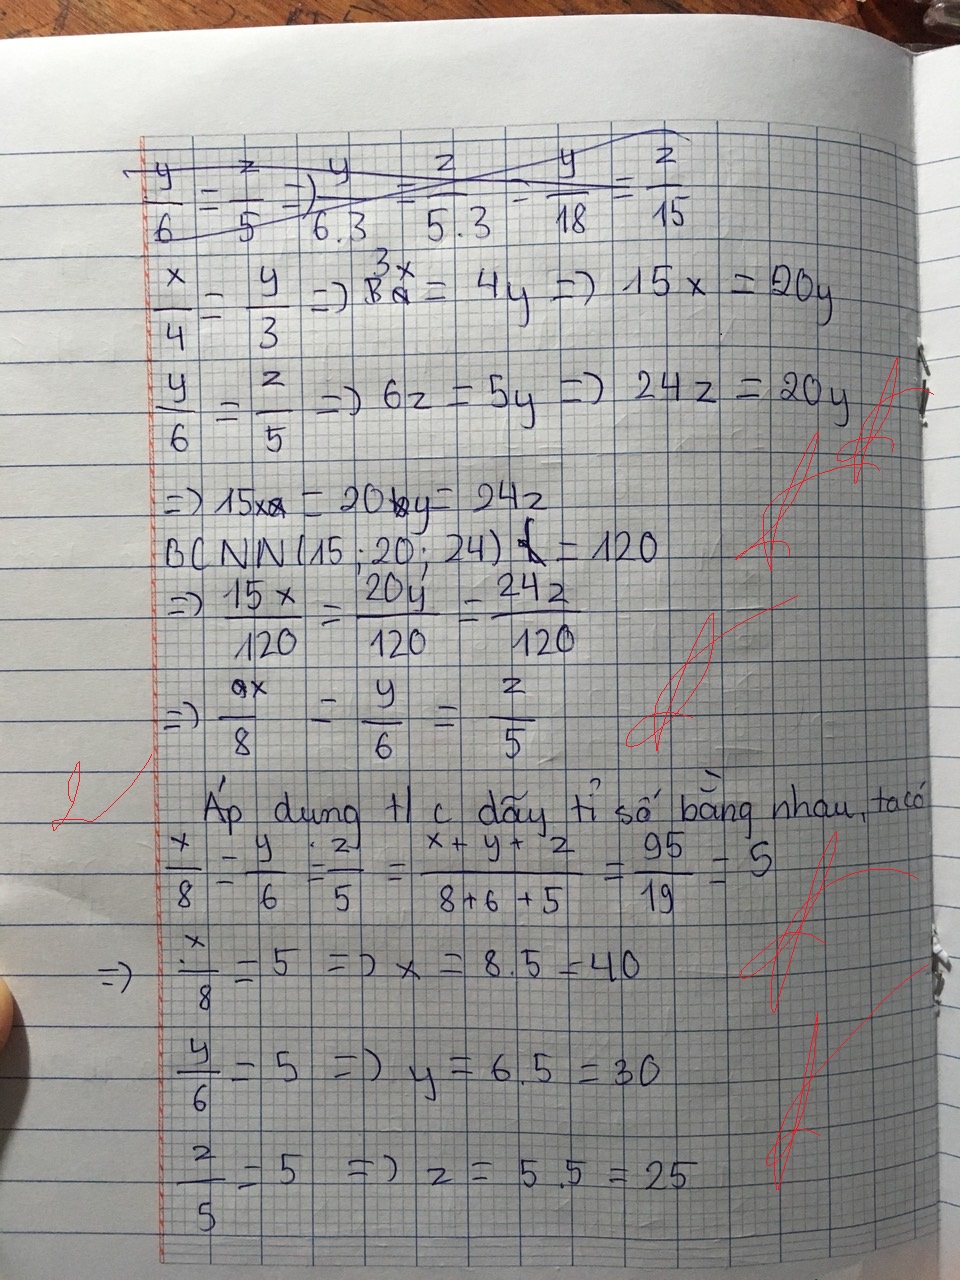 y/6 = z/5 => y/6.3 = z/5.3 = y/18 = z/15
x/4 = y/3 => 3x = 4y => 15x = 20y
y/6 = z/5 => 6z = 5y => 24z = 20y
=> 15x = 20y = 24z
BCNN(15; 20; 24) = 120
=> 15x/120 = 20y/120 = 24z/120
=> x/8 = y/6 = z/5
Áp dụng t/c dãy tỉ số bằng nhau, ta có
x/8 = y/6 = z/5 = x+y+z/8+6+5 = 95/19 = 5
=> x/8 = 5 => x = 8.5 = 40
y/6 = 5 => y = 6.5 = 30
z/5 = 5 => z = 5.5 = 25